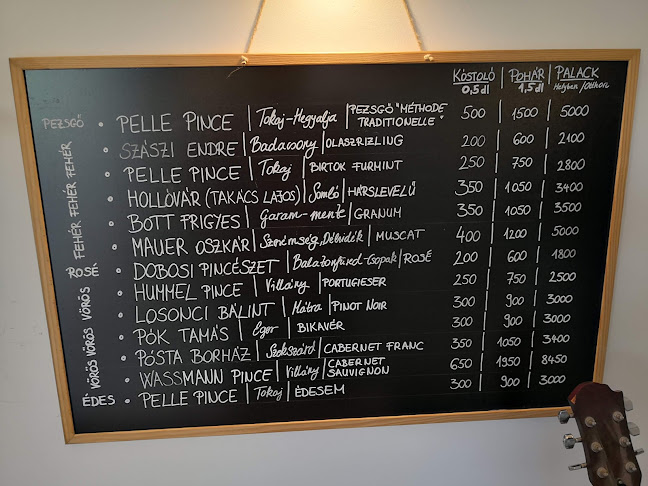 KÓSTOLÓ | POHÁR | PALACK
0,5 dl 1,5 dl Helyben / Otthon
PEZSGŐ • PELLE PINCE | Tokaj-Hegyalja | PEZSGŐ "MÉTHODE TRADITIONELLE" 500 | 1500 | 5000
FEHÉR FEHÉR FEHÉR
• SZÁSZI ENDRE | Badacsony | OLASZRIZLING 200 | 600 | 2100
• PELLE PINCE | Tokaj | BIRTOK FURMINT 250 | 750 | 2800
• HOLLÓVÁR (TAKÁCS LAJOS) | Somló | HÁRSLEVELŰ 350 | 1050 | 3400
• BOTT FRIGYES | Garam-mente | GRANUM 350 | 1050 | 3500
• MAUER OSZKÁR | Szerémség, Délvidék | MUSCAT 400 | 1200 | 5000
ROSÉ • DOBOSI PINCÉSZET | Balatonfüred-Csopak | ROSÉ 200 | 600 | 1800
VÖRÖS VÖRÖS VÖRÖS
• HUMMEL PINCE | Villány | PORTUGIESER 250 | 750 | 2500
• LOSONCI BÁLINT | Mátra | PINOT NOIR 300 | 900 | 3000
• PÓK TAMÁS | Eger | BIKAVÉR 300 | 900 | 3000
• PÓSTA BORHÁZ | Szekszárd | CABERNET FRANC 350 | 1050 | 3400
• WASSMANN PINCE | Villány | CABERNET SAUVIGNON 650 | 1950 | 8450
ÉDES • PELLE PINCE | Tokaj | ÉDESEM 300 | 900 | 3000